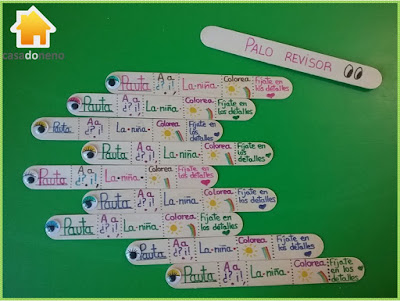 casadoneno
PALO REVISOR
Pauta
Aa
¿?¡!
La·niña·
Colorea
Fíjate en
los detalles
Pauta
Aa
¿?¡!
La·niña·
Colorea
Fíjate en
los detalles
Pauta
Aa
¿?¡!
La·niña·
Colorea
Fíjate en
los
detalles
Pauta
Aa
¿?¡!
La·niña·
Colorea
Fíjate en
los
detalles
Pauta
Aa
¿?¡!
La·niña·
Colorea
Fíjate en
los detalles
Pauta
Aa
¿?¡!
La·niña·
Colorea
Fíjate en
los detalles
Pauta
Aa
¿?¡!
La·niña·
Colorea
Fíjate en
los detalles
Pauta
Aa
¿?¡!
La·niña·
Colorea
Fíjate en
los detalles
Pauta
Aa
¿?¡!
La·niña·
Colorea
Fíjate en
los detalles